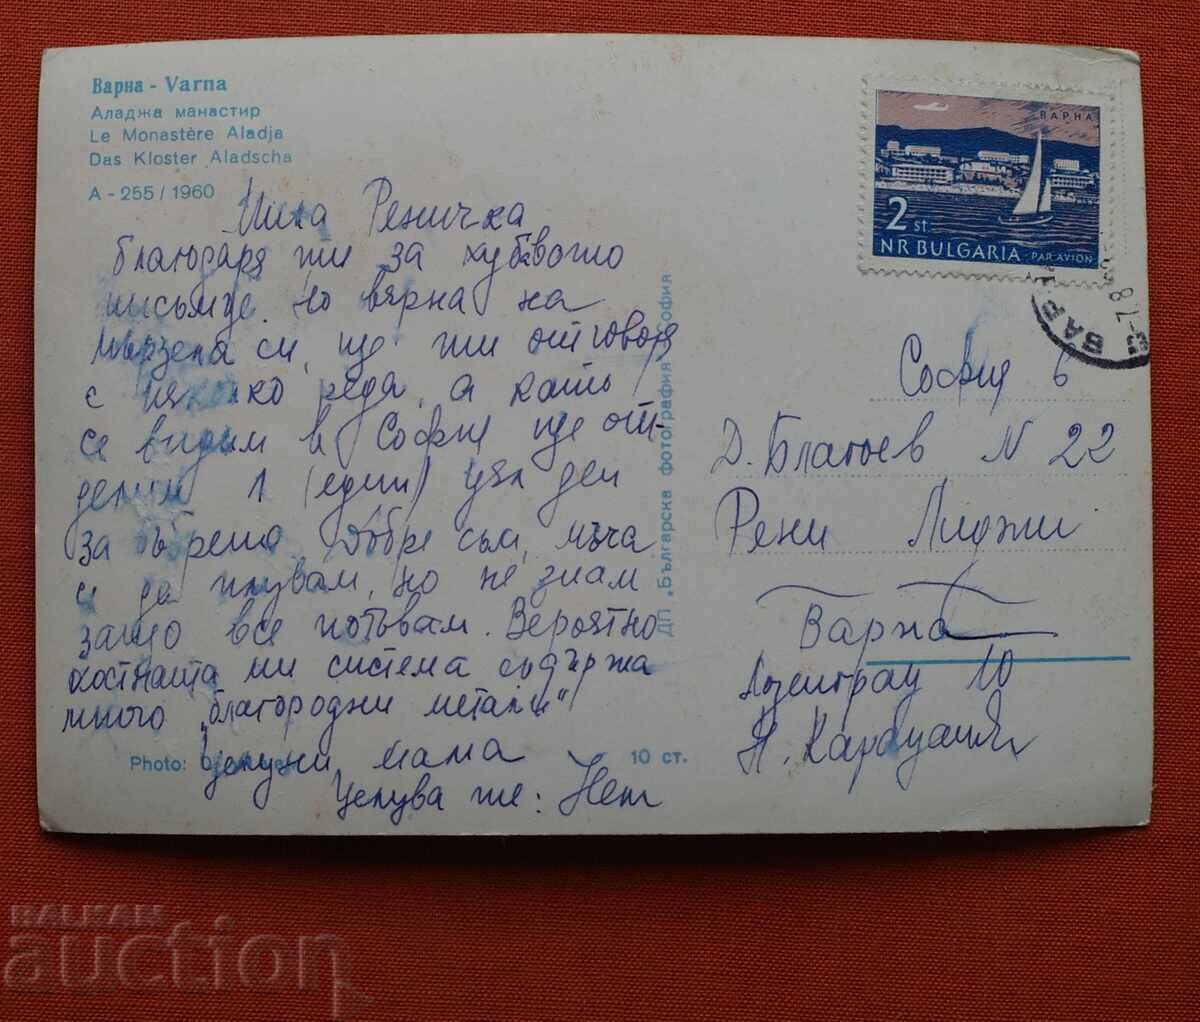 Варна - Varna
Аладжа манастир
Le Monastère Aladja
Das Kloster Aladscha
A - 255 / 1960
Мила Реничка
благодаря ти за хубавото
писъмце. Но вярна на
мързела си, ще ти отговоря
с няколко реда, а като
се видим в София ще от-
делим 1 (един) цял ден
за бърене. Добре съм, мъча
се да плувам, но не знам
защо все потъвам. Вероятно
костната ми система съдържа
много "благородни метали"
Целуни мама
Целува те: Нет
Photo:
10 ст.
ДП "Българска фотография" София
ВАРНА
2 st.
NR BULGARIA PAR AVION
ВАР
-7.8
София 6
Д. Благоев N 22
Рени Лиджи
Варна
Лозенград 10
Н.
BALKAN
auction